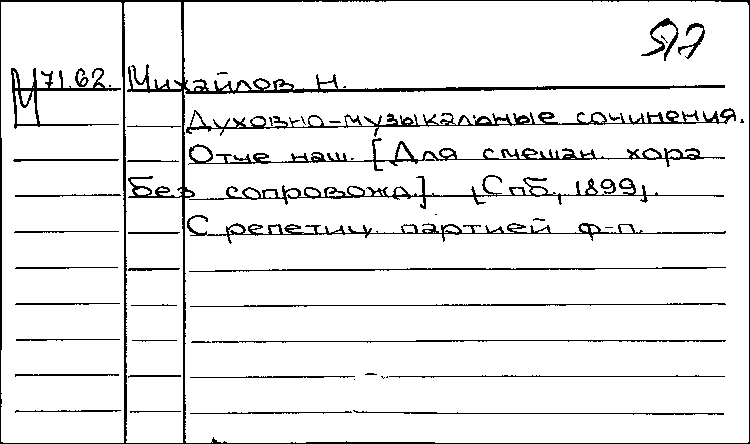 517
М 71.62. Михайлов Н.
Духовно-музыкальные сочинения.
Отче наш. [Для смешан. хора
без сопровожд.] [Спб., 1899].
С репетиц. партией ф-п.